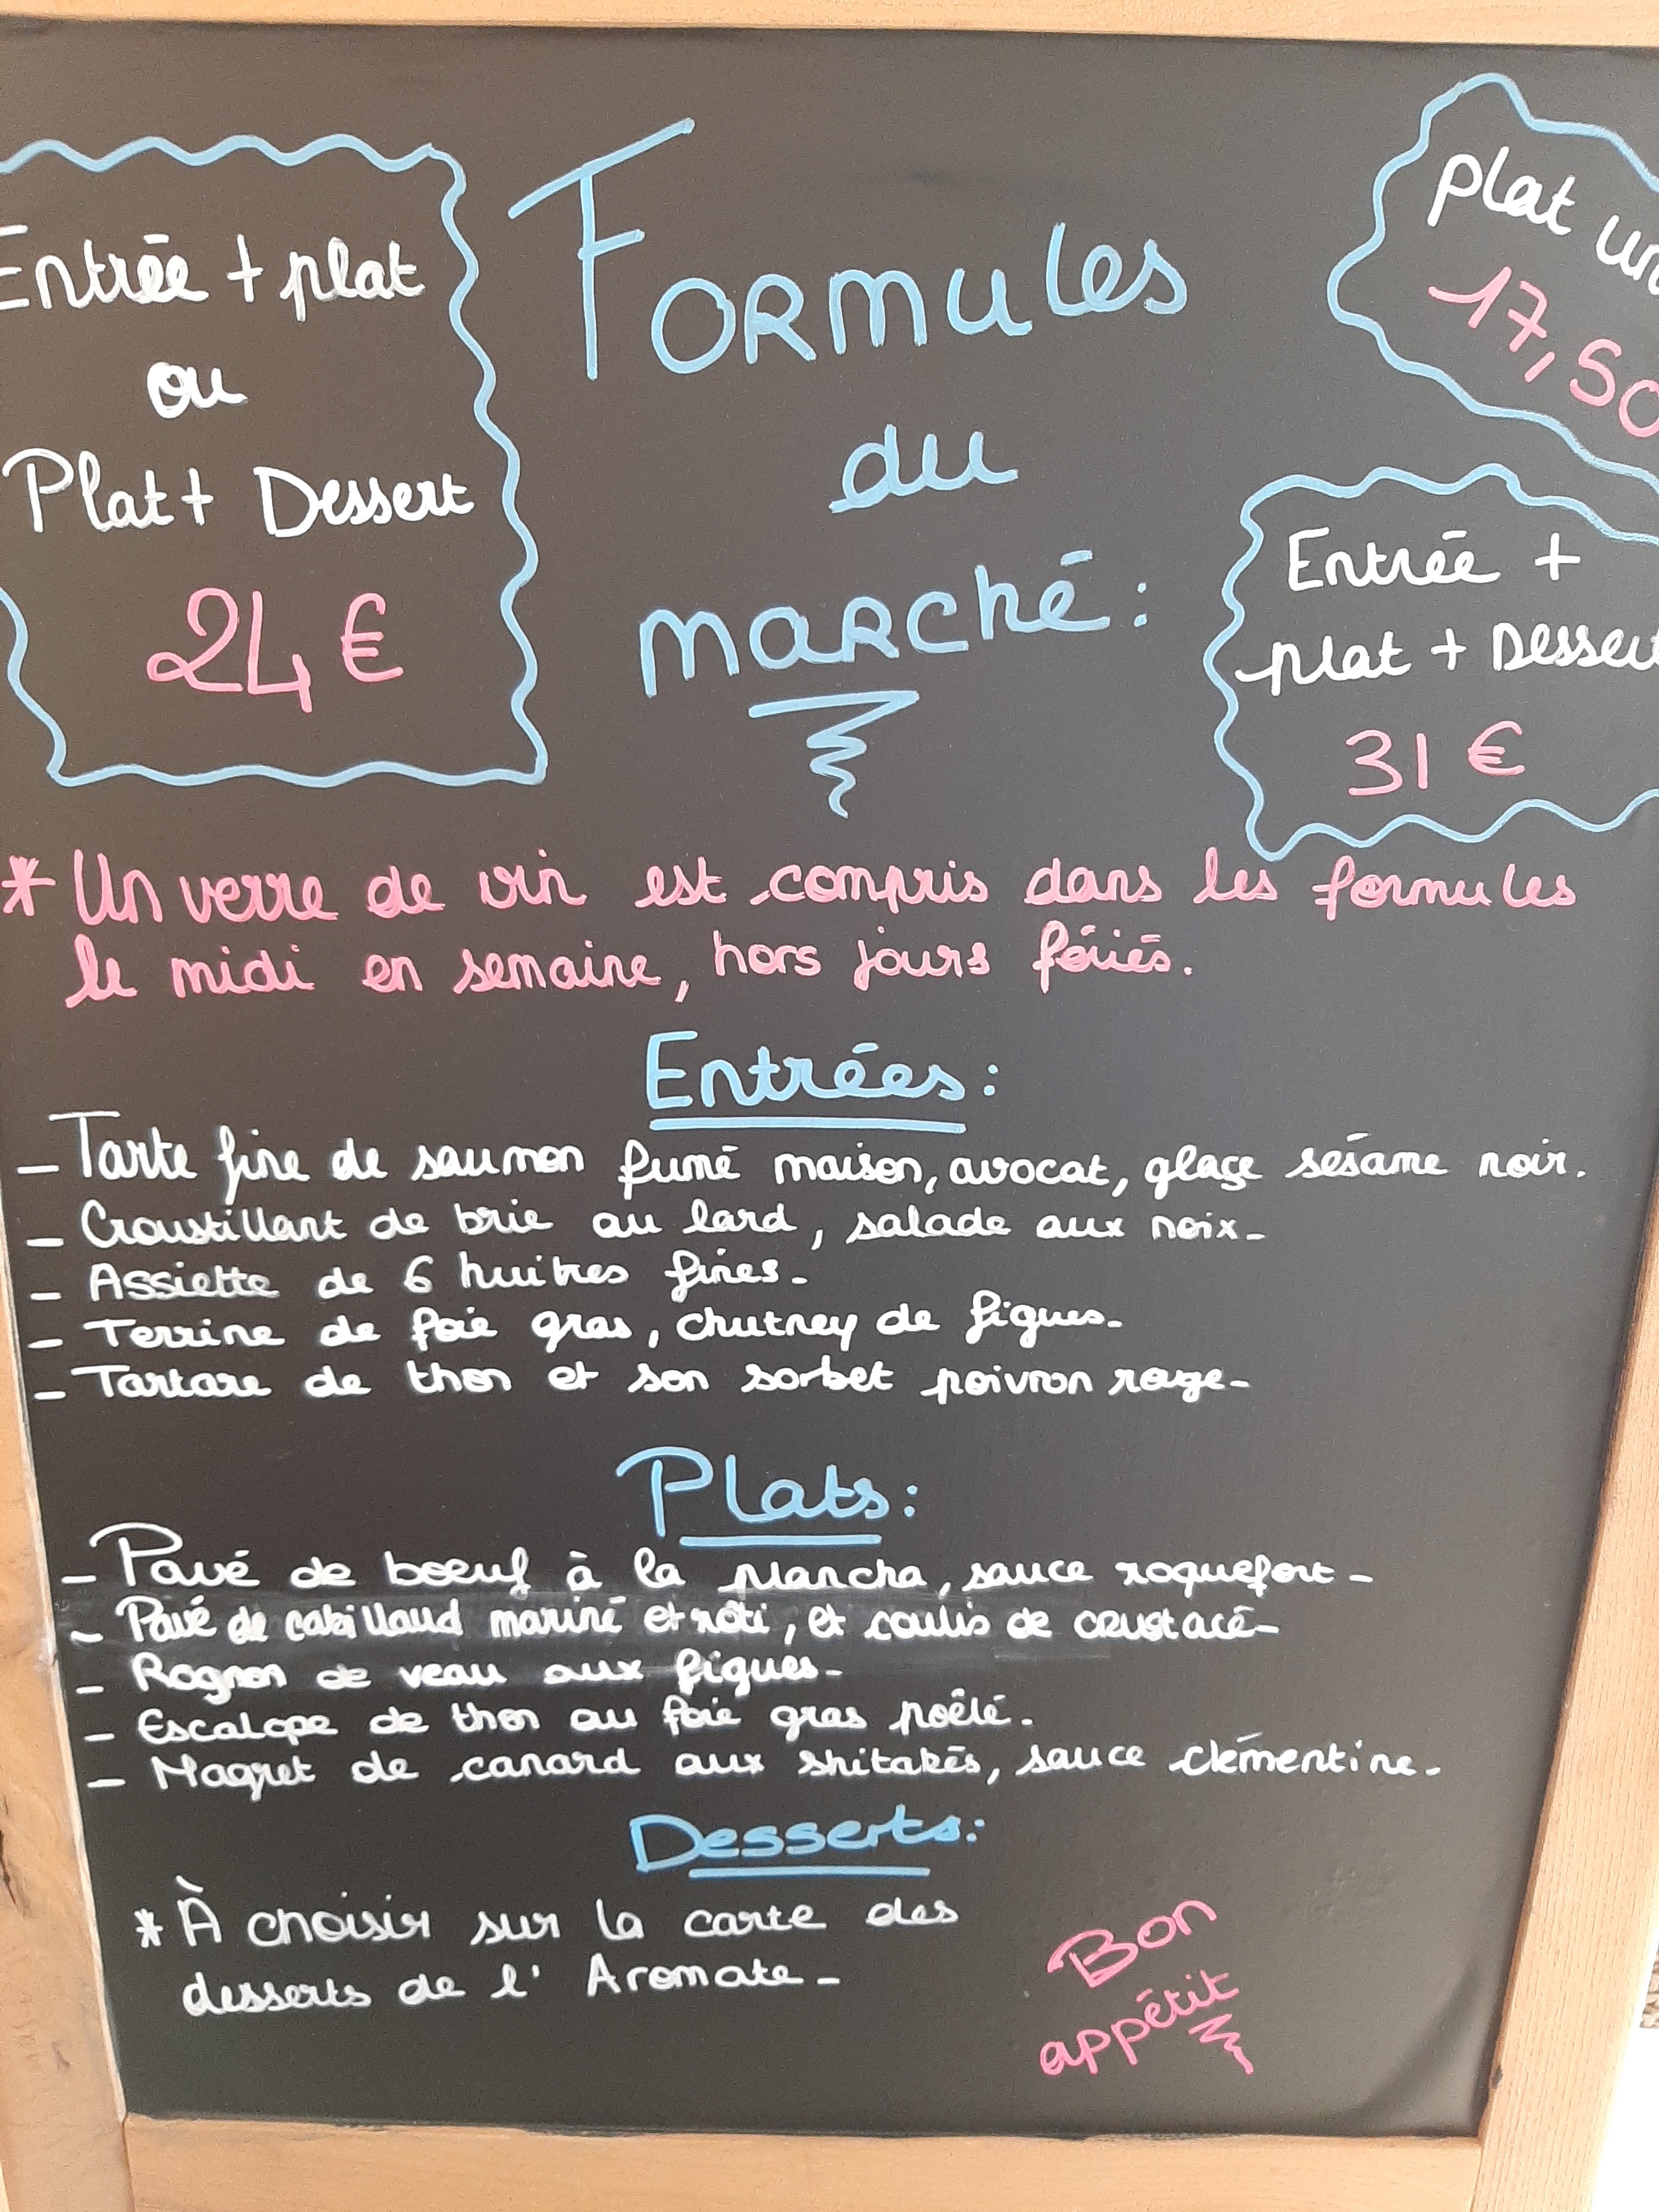 Entrée + plat
ou
Plat + Dessert
24 €
Formules
du
marché :
plat
17,50
Entrée +
plat + Dessert
31 €
* Un verre de vin est compris dans les formules
le midi en semaine, hors jours fériés.
Entrées :
- Tarte fine de saumon fumé maison, avocat, glaçe sésame noir.
- Croustillant de brie au lard, salade aux noix-
- Assiette de 6 huitres fines-
- Terrine de foie gras, chutney de figues-
- Tartare de thon et son sorbet poivron rouge-
Plats :
- Pavé de boeuf à la plancha, sauce roquefort-
- Pavé de cabillaud mariné et rôti, et coulis de crustacé-
- Rognon de veau aux figues-
- Escalope de thon au foie gras poêlé.
- Magret de canard aux shitakés, sauce clémentine.
Desserts :
* À choisir sur la carte des
desserts de l' Aromate-
Bon
appétit